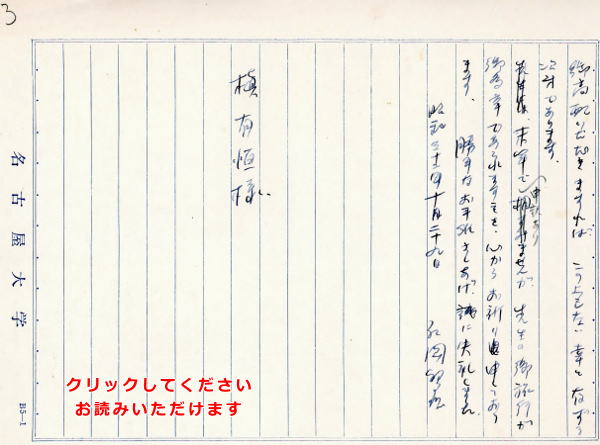 御高配いただきますれば、こうえもない幸と存ずる
次第であります。
末筆で 申訳ありませんが、先生の御旅行が
御多幸でありますことを、心からお祈り申しており
ます。 勝手なお手紙さしあげ、誠に失礼しました。
昭和三十一年十月二十九日
槙有恒様
名古屋大学
B5-1
3
クリックしてください
お読みいただけます